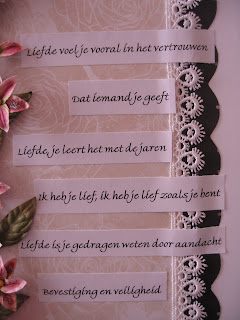 Liefde voel je vooral in het vertrouwen
Dat iemand je geeft
Liefde, je leert het met de jaren
Ik heb je lief, ik heb je lief zoals je bent
Liefde is je gedragen weten door aandacht
Bevestiging en veiligheid